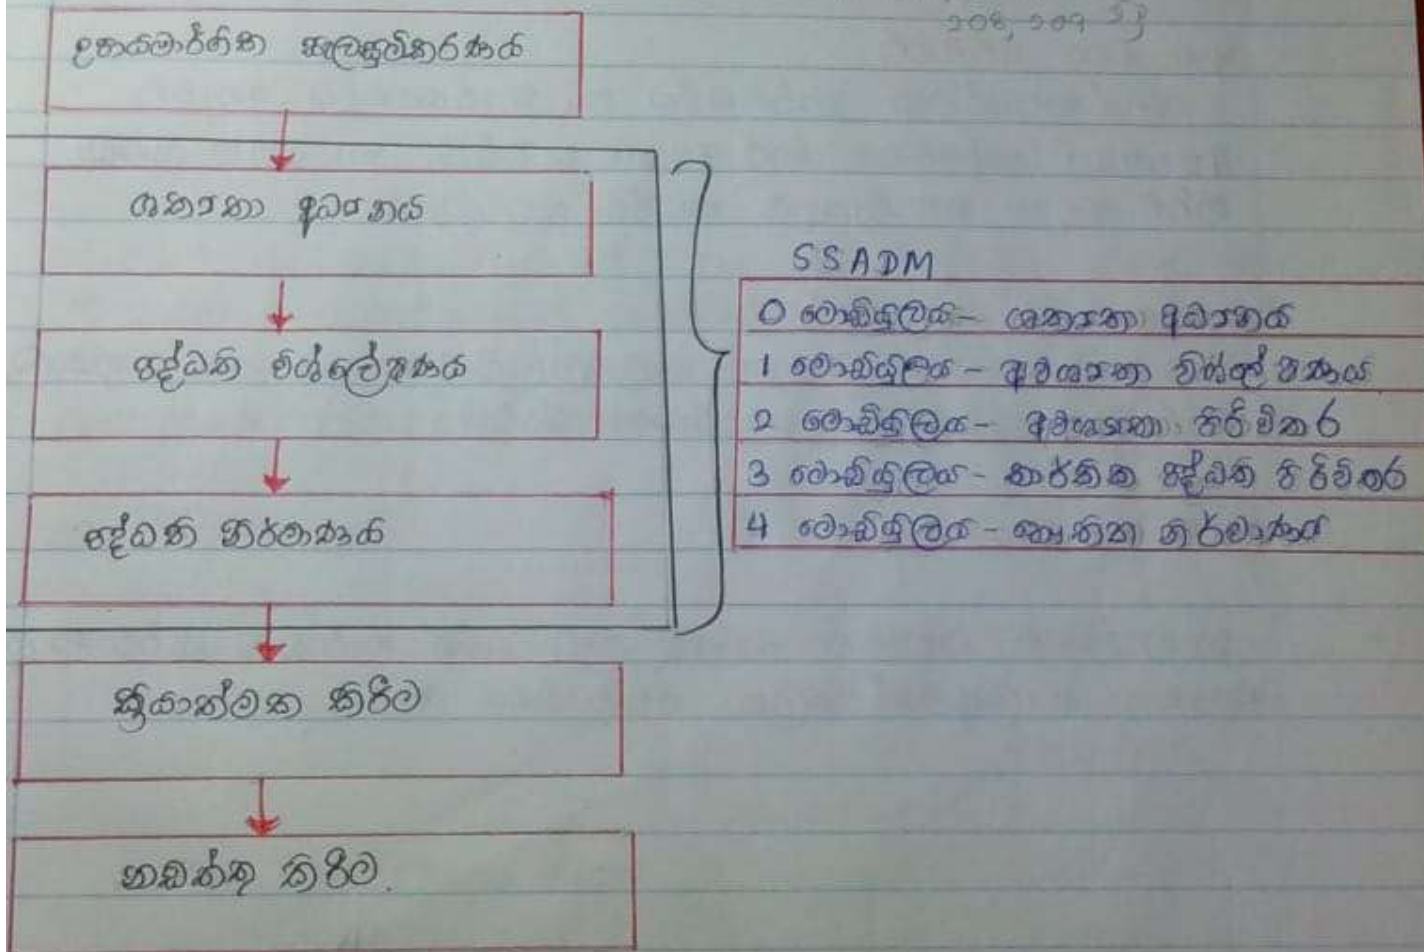 208, 209
උපායමාර්ගික සැලසුම්කරණය
ශක්‍යතා අධ්‍යනය
පද්ධති විශ්ලේෂණය
පද්ධති නිර්මාණය
ක්‍රියාත්මක කිරීම
නඩත්තු කිරීම.
SSADM
0 මොඩියුලය - ශක්‍යතා අධ්‍යනය
1 මොඩියුලය - අවශ්‍යතා විශ්ලේෂණය
2 මොඩියුලය - අවශ්‍යතා පිරිවිතර
3 මොඩියුලය - තාර්කික පද්ධති පිරිවිතර
4 මොඩියුලය - භෞතික නිර්මාණය